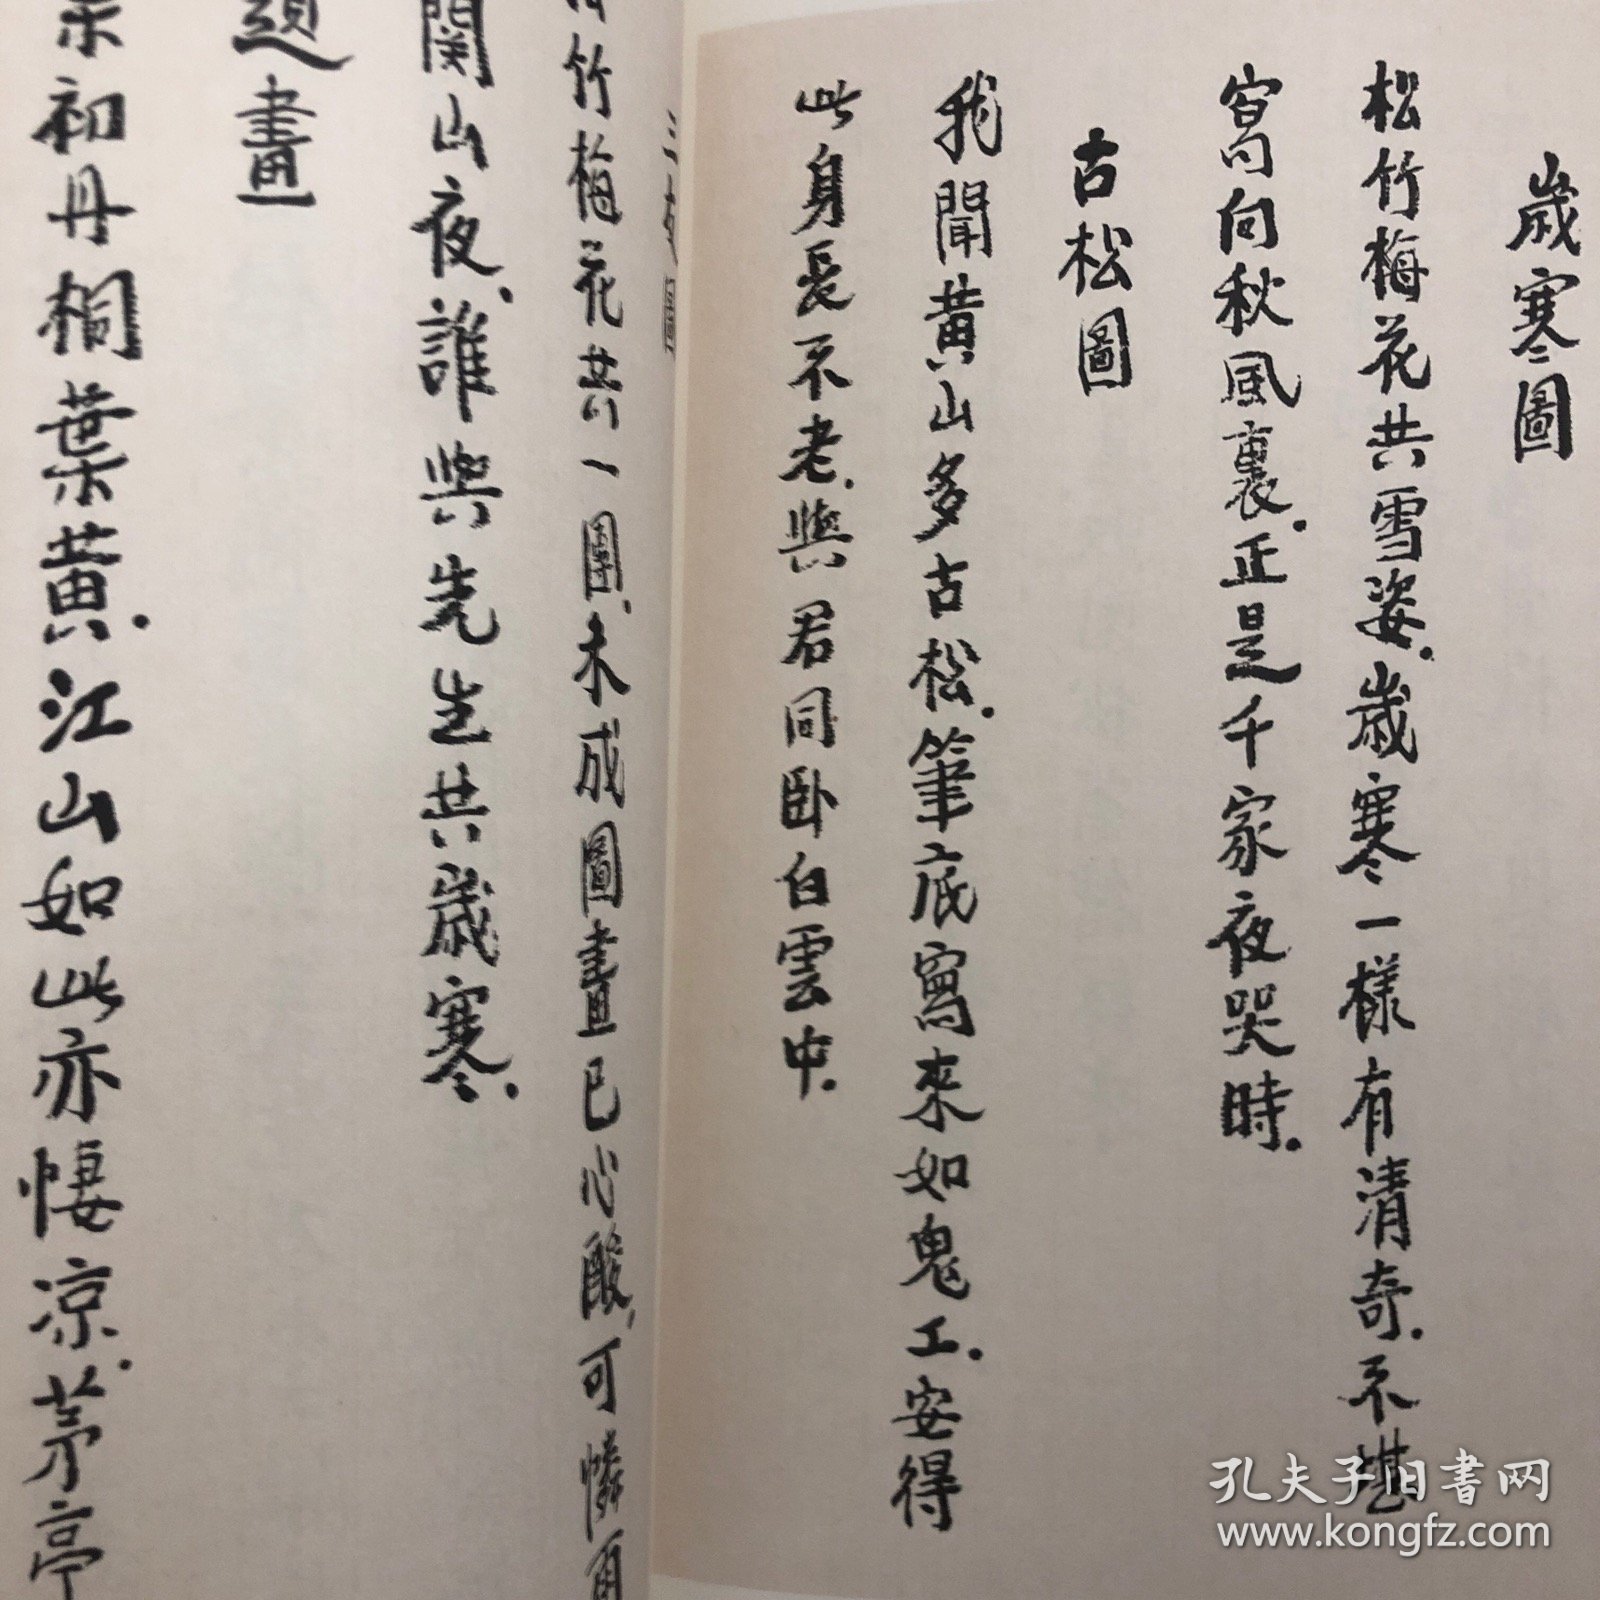 歲寒圖
松竹梅花共雪姿.歲寒一樣有清奇.不堪
寫向秋風裏.正是千家夜哭時.
古松圖
我聞黃山多古松.筆底寫來如鬼工.安得
此身長不老.與君同臥白雲中.
三友圖
竹梅花共一團.未成圖畫已心酸.可憐
關山夜.誰與先生共歲寒.
題畫
初丹桐葉黃.江山如此亦悽涼.茅亭
孔夫子旧書网
www.kongfz.com